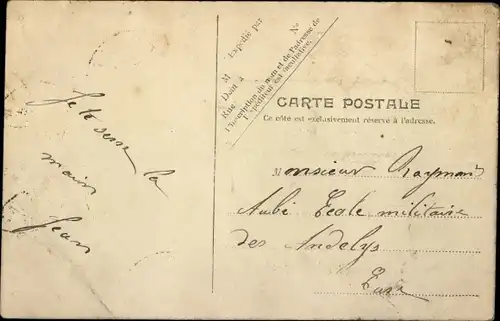 Je te serre la
main
Jean
Expédié par
M
Nº
Demt à
Rue
L'Inscription du nom et de l'adresse de
l'Expéditeur est facultative.
CARTE POSTALE
Ce côté est exclusivement réservé à l'adresse.
Monsieur Raymond
Aubé Ecole militaire
des Andelys
Eure